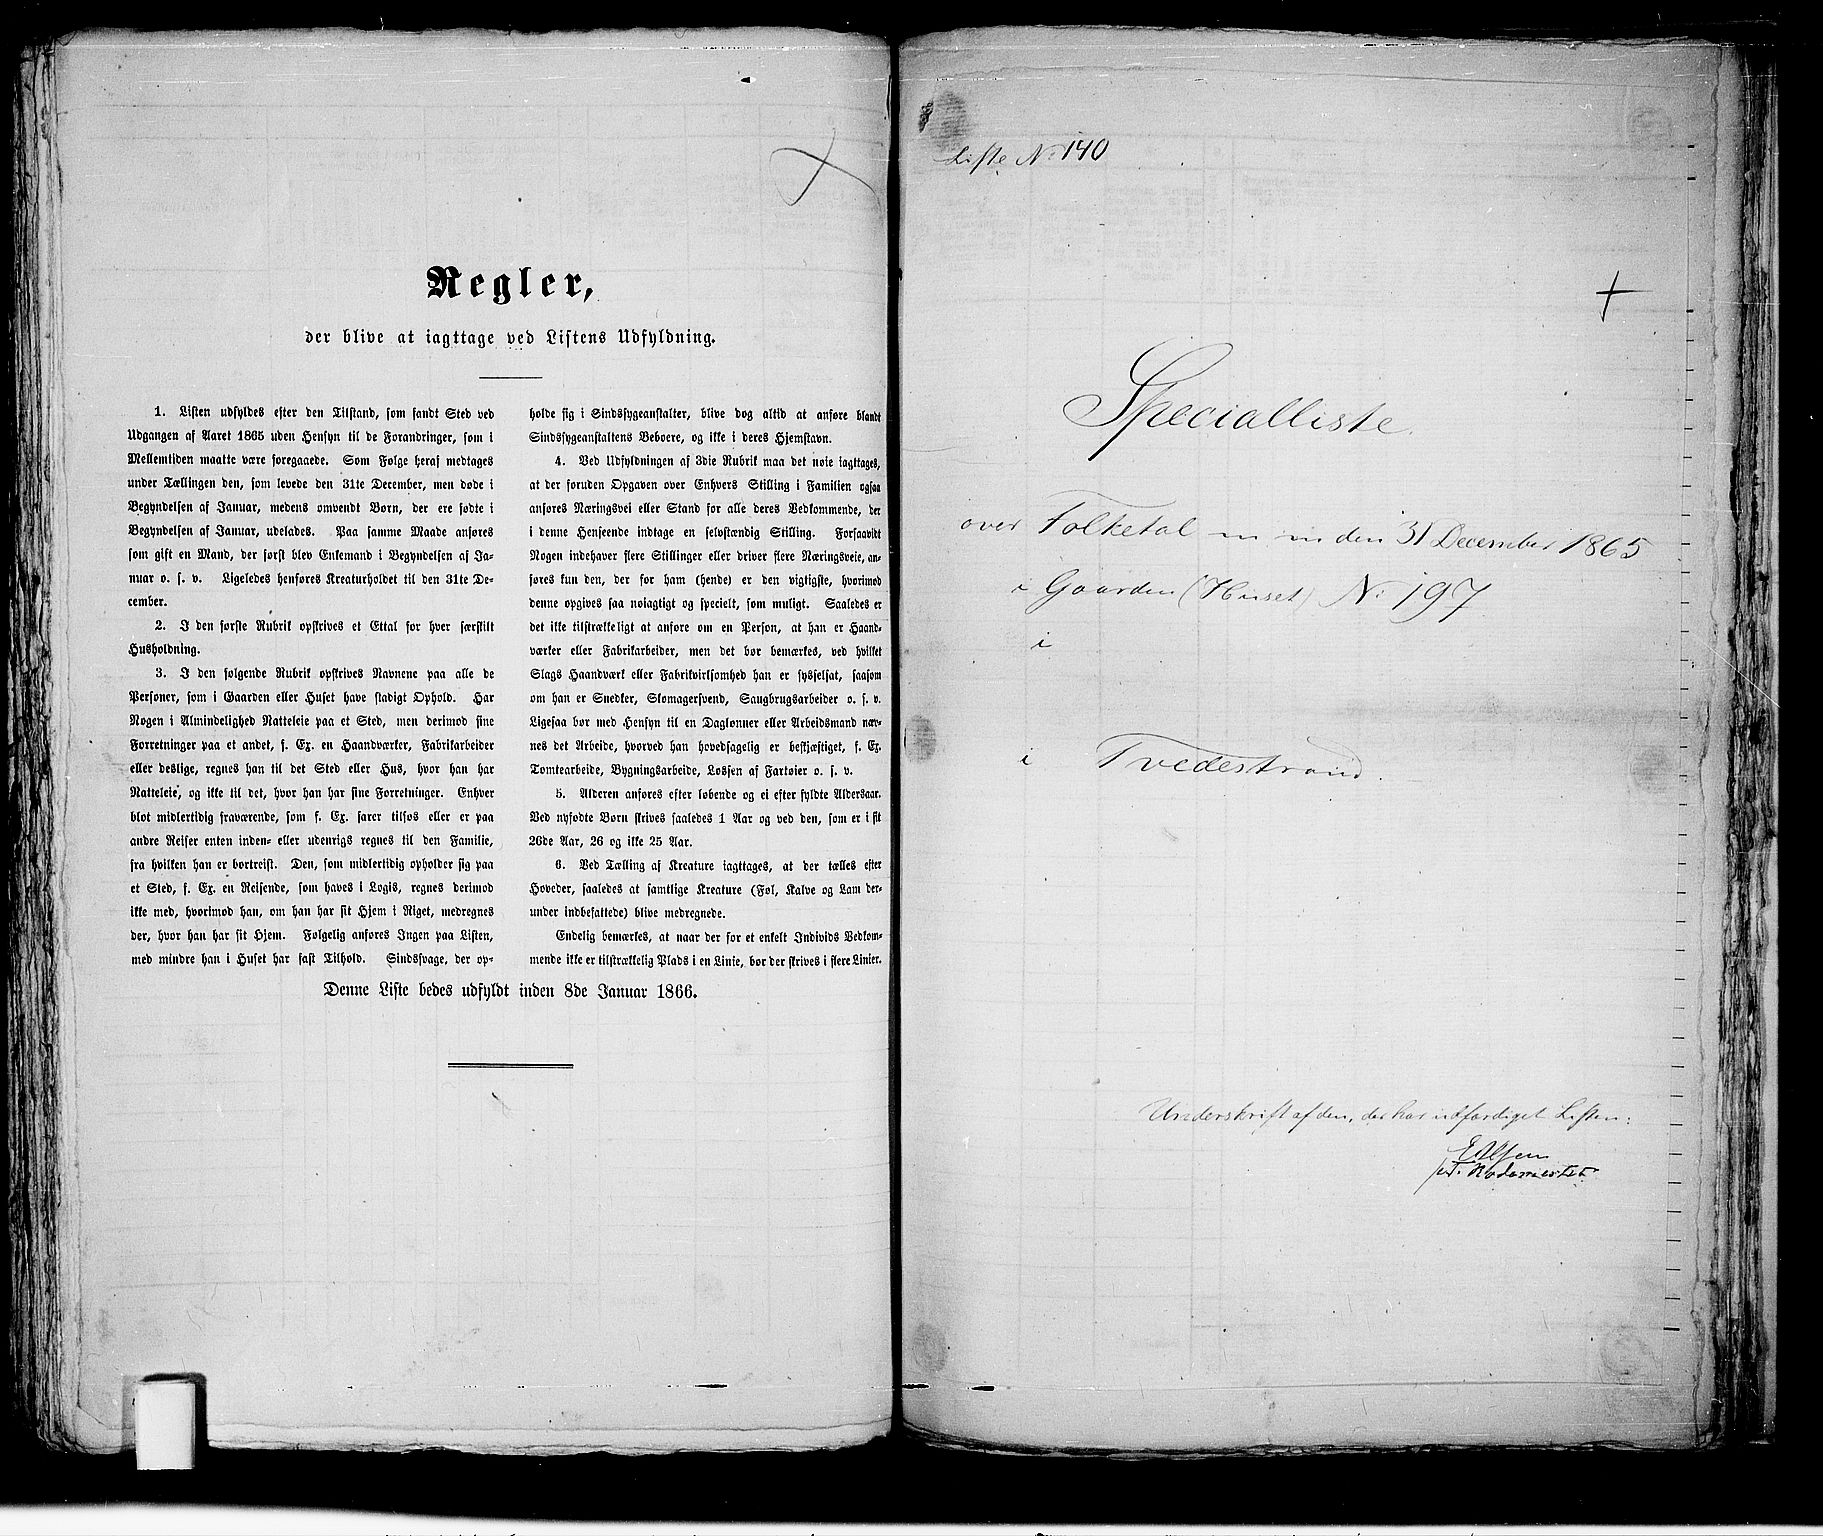 Regler,
der blive at iagttage ved Listens Udfyldning.
1. Listen udfyldes efter den Tilstand, som fandt Sted ved
Udgangen af Aaret 1865 uden Hensyn til de Forandringer, som i
Mellemtiden maatte være foregaaede. Som Følge heraf medtages
under Tællingen den, som levede den 31te December, men døde i
Begyndelsen af Januar, medens omvendt Børn, der ere fødte i
Begyndelsen af Januar, udelades. Paa samme Maade anføres
som gift en Mand, der først blev Enkemand i Begyndelsen af Ja-
nuar o. s. v. Ligeledes henføres Kreaturholdet til den 31te De-
cember.
2. I den første Rubrik opskrives et Ettal for hver særskilt
Husholdning.
3. I den følgende Rubrik opskrives Navnene paa alle de
Personer, som i Gaarden eller Huset have stadigt Ophold. Har
Nogen i Almindelighed Natteleie paa et Sted, men derimod sine
Forretninger paa et andet, f. Ex. en Haandværker, Fabrikarbeider
eller deslige, regnes han til det Sted eller Hus, hvor han har
Natteleie, og ikke til det, hvor han har sine Forretninger. Enhver
blot midlertidig fraværende, som f. Ex. farer tilsøs eller er paa
andre Reiser enten inden- eller udenrigs regnes til den Familie,
fra hvilken han er bortreist. Den, som midlertidig opholder sig paa
et Sted, f. Ex. en Reisende, som haves i Logis, regnes derimod
ikke med, hvorimod han, om han har sit Hjem i Riget, medregnes
der, hvor han har sit Hjem. Følgelig anføres Ingen paa Listen,
med mindre han i Huset har fast Tilhold. Sindssvage, der op-
holde sig i Sindssygeanstalter, blive dog altid at anføre blandt
Sindssygeanstaltens Beboere, og ikke i deres Hjemstavn.
4. Ved Udfyldningen af 3die Rubrik maa det nøie iagttages,
at der foruden Opgaven over Enhvers Stilling i Familien ogsaa
anføres Næringsvei eller Stand for alle deres Vedkommende, der
i denne Henseende indtage en selvstændig Stilling. Forsaavidt
Nogen indehaver flere Stillinger eller driver flere Næringsveie, an-
føres kun den, der for ham (hende) er den vigtigste, hvorimod
denne opgives saa nøiagtigt og specielt, som muligt. Saaledes er
det ikke tilstrækkeligt at anføre om en Person, at han er Haand-
værker eller Fabrikarbeider, men det bør bemærkes, ved hvilket
Slags Haandværk eller Fabrikvirksomhed han er sysselsat, saasom
om han er Snedker, Skomagersvend, Saugbrugsarbeider o. s. v.
Ligesaa bør med Hensyn til en Daglønner eller Arbeidsmand næv-
nes det Arbeide, hvorved han hovedsagelig er beskjæftiget, f. Ex.
Tomtearbeide, Bygningsarbeide, Lossen af Fartøier o. s. v.
5. Alderen anføres efter løbende og ei efter fyldte Aldersaar.
Ved nyfødte Børn skrives saaledes 1 Aar og ved den, som er i sit
26de Aar, 26 og ikke 25 Aar.
6. Ved Tælling af Kreature iagttages, at der tælles efter
Hoveder, saaledes at samtlige Kreature (Føl, Kalve og Lam der-
under indbefattede) blive medregnede.
Endelig bemærkes, at naar der for et enkelt Individs Vedkom-
mende ikke er tilstrækkelig Plads i en Linie, bør der skrives i flere Linier.
Denne Liste bedes udfyldt inden 8de Januar 1866.
Liste No 140
Specialliste
over Folketal m m den 31 December 1865
i Gaarden (Huset) No 197
i
i Tvedestrand.
Underskrift af den, der har udfærdiget Listen:
Rodemester